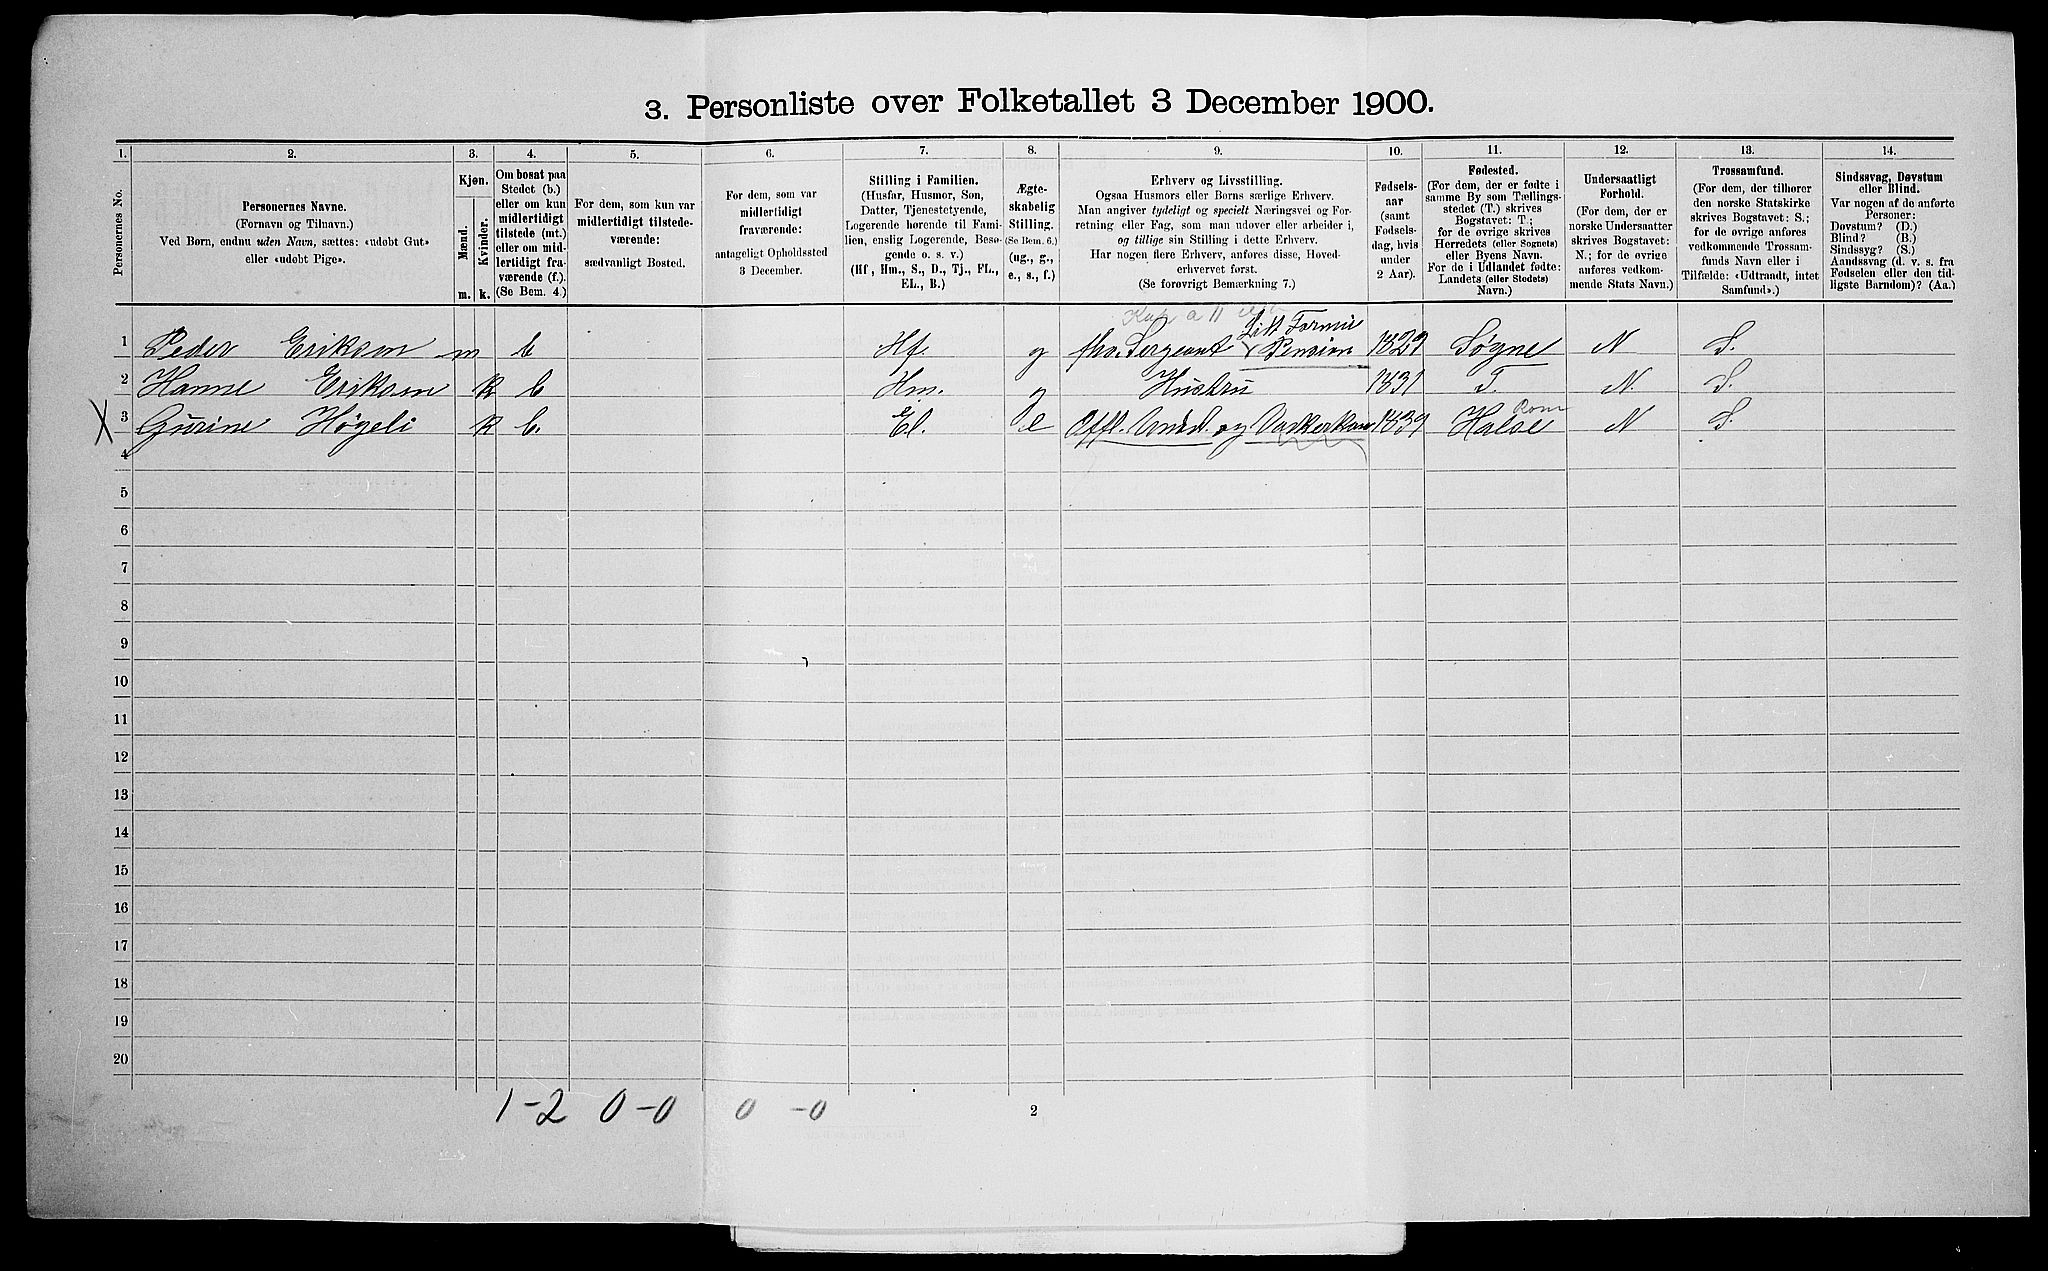 3. Personliste over Folketallet 3 December 1900.
1. 2. 3. 4. 5. 6. 7. 8. 9. 10. 11. 12. 13. 14.
Personernes No.
Personernes Navne.
(Fornavn og Tilnavn.)
Ved Børn, endnu uden Navn, sættes: «udøbt Gut»
eller «udøbt Pige».
Kjøn.
Mænd.
Kvinder.
m. k.
Om bosat paa
Stedet (b.)
eller om kun
midlertidigt
tilstede (mt.)
eller om mid-
lertidigt fra-
værende (f.).
(Se Bem. 4.)
For dem, som kun var
midlertidigt tilstede-
værende:
sædvanligt Bosted.
For dem, som var
midlertidigt
fraværende:
antageligt Opholdssted
3 December.
Stilling i Familien.
(Husfar, Husmor, Søn,
Datter, Tjenestetyende,
Logerende hørende til Fami-
lien, enslig Logerende, Besø-
gende o. s. v.)
(Hf., Hm., S., D., Tj., FL.,
EL., B.)
Ægte-
skabelig
Stilling.
(Se Bem. 6.)
(ug., g.,
e., s., f.)
Erhverv og Livsstilling.
Ogsaa Husmors eller Børns særlige Erhverv.
Man angiver tydeligt og specielt Næringsvei og For-
retning eller Fag, som man udøver eller arbeider i,
og tillige sin Stilling i dette Erhverv.
Har nogen flere Erhverv, anføres disse, Hoved-
erhvervet først.
(Se forøvrigt Bemærkning 7.)
Fødsels-
aar
(samt
Fødsels-
dag, hvis
under
2 Aar).
Fødested.
(For dem, der er fødte i
samme By som Tællings-
stedet (T.) skrives
Bogstavet: T.;
for de øvrige skrives
Herredets (eller Sognets)
eller Byens Navn.
For de i Udlandet fødte:
Landets (eller Stedets)
Navn.)
Undersaatligt
Forhold.
(For dem, der er
norske Undersaatter
skrives Bogstavet:
N.; for de øvrige
anføres vedkom-
mende Stats Navn.)
Trossamfund.
(For dem, der tilhører
den norske Statskirke
skrives Bogstavet: S.;
for de øvrige anføres
vedkommende Trossam-
funds Navn eller i
Tilfælde: «Udtraadt, intet
Samfund».)
Sindssvag, Døvstum
eller Blind.
Var nogen af de anførte
Personer:
Døvstum? (D.)
Blind? (B.)
Sindssyg? (S.)
Aandssvag (d. v. s. fra
Fødselen eller den tid-
ligste Barndom)? (Aa.)
1 Peder Eriksen m b Hf. g fhv. Sergeant Lidt Formue Pension 1829 Søgne N S.
2 Hanne Eriksen k b Hm. g Hustru 1831 T. N. S.
X 3 Gurine Høgeli k b. El. e og Vaskerkone 1839 Halse N S.
4
5
6
7
8
9
10
11
12
13
14
15
16
17
18
19
20
1-2 0-0 0-0
2